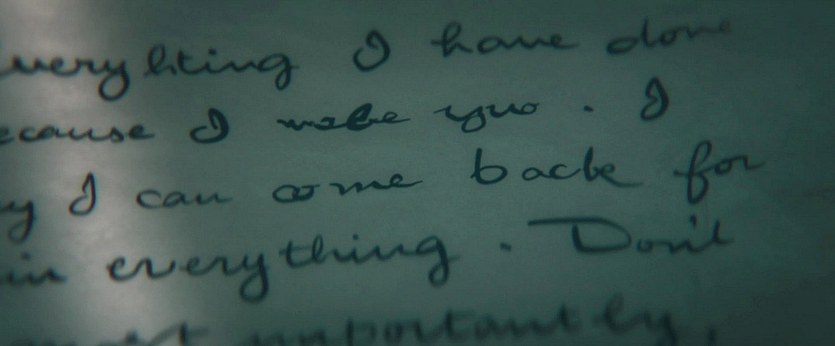 everything I have done
ecause I make you . I
y I can come back for
in everything . Don't
most importantly,